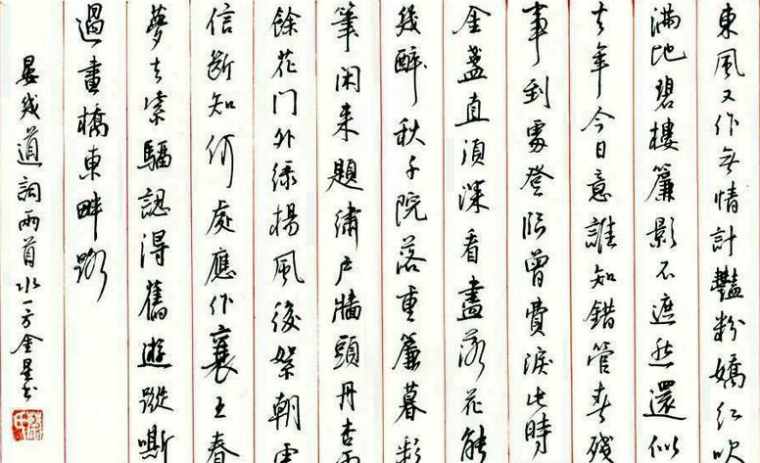 東風又作無情計豔粉嬌紅吹
滿地碧樓簾影不遮愁還似
去年今日意誰知錯管春殘
事到處登臨曾費淚此時
金盞直須深看盡落花能
幾醉秋千院落重簾暮彩
筆闲来題繡户牆頭丹杏雨
餘花门外绿楊風後絮朝雲
信斷知何處應作襄王春
夢去紫騮認得舊遊蹤嘶
過畫橋東畔路
晏幾道詞兩首水一方金星书